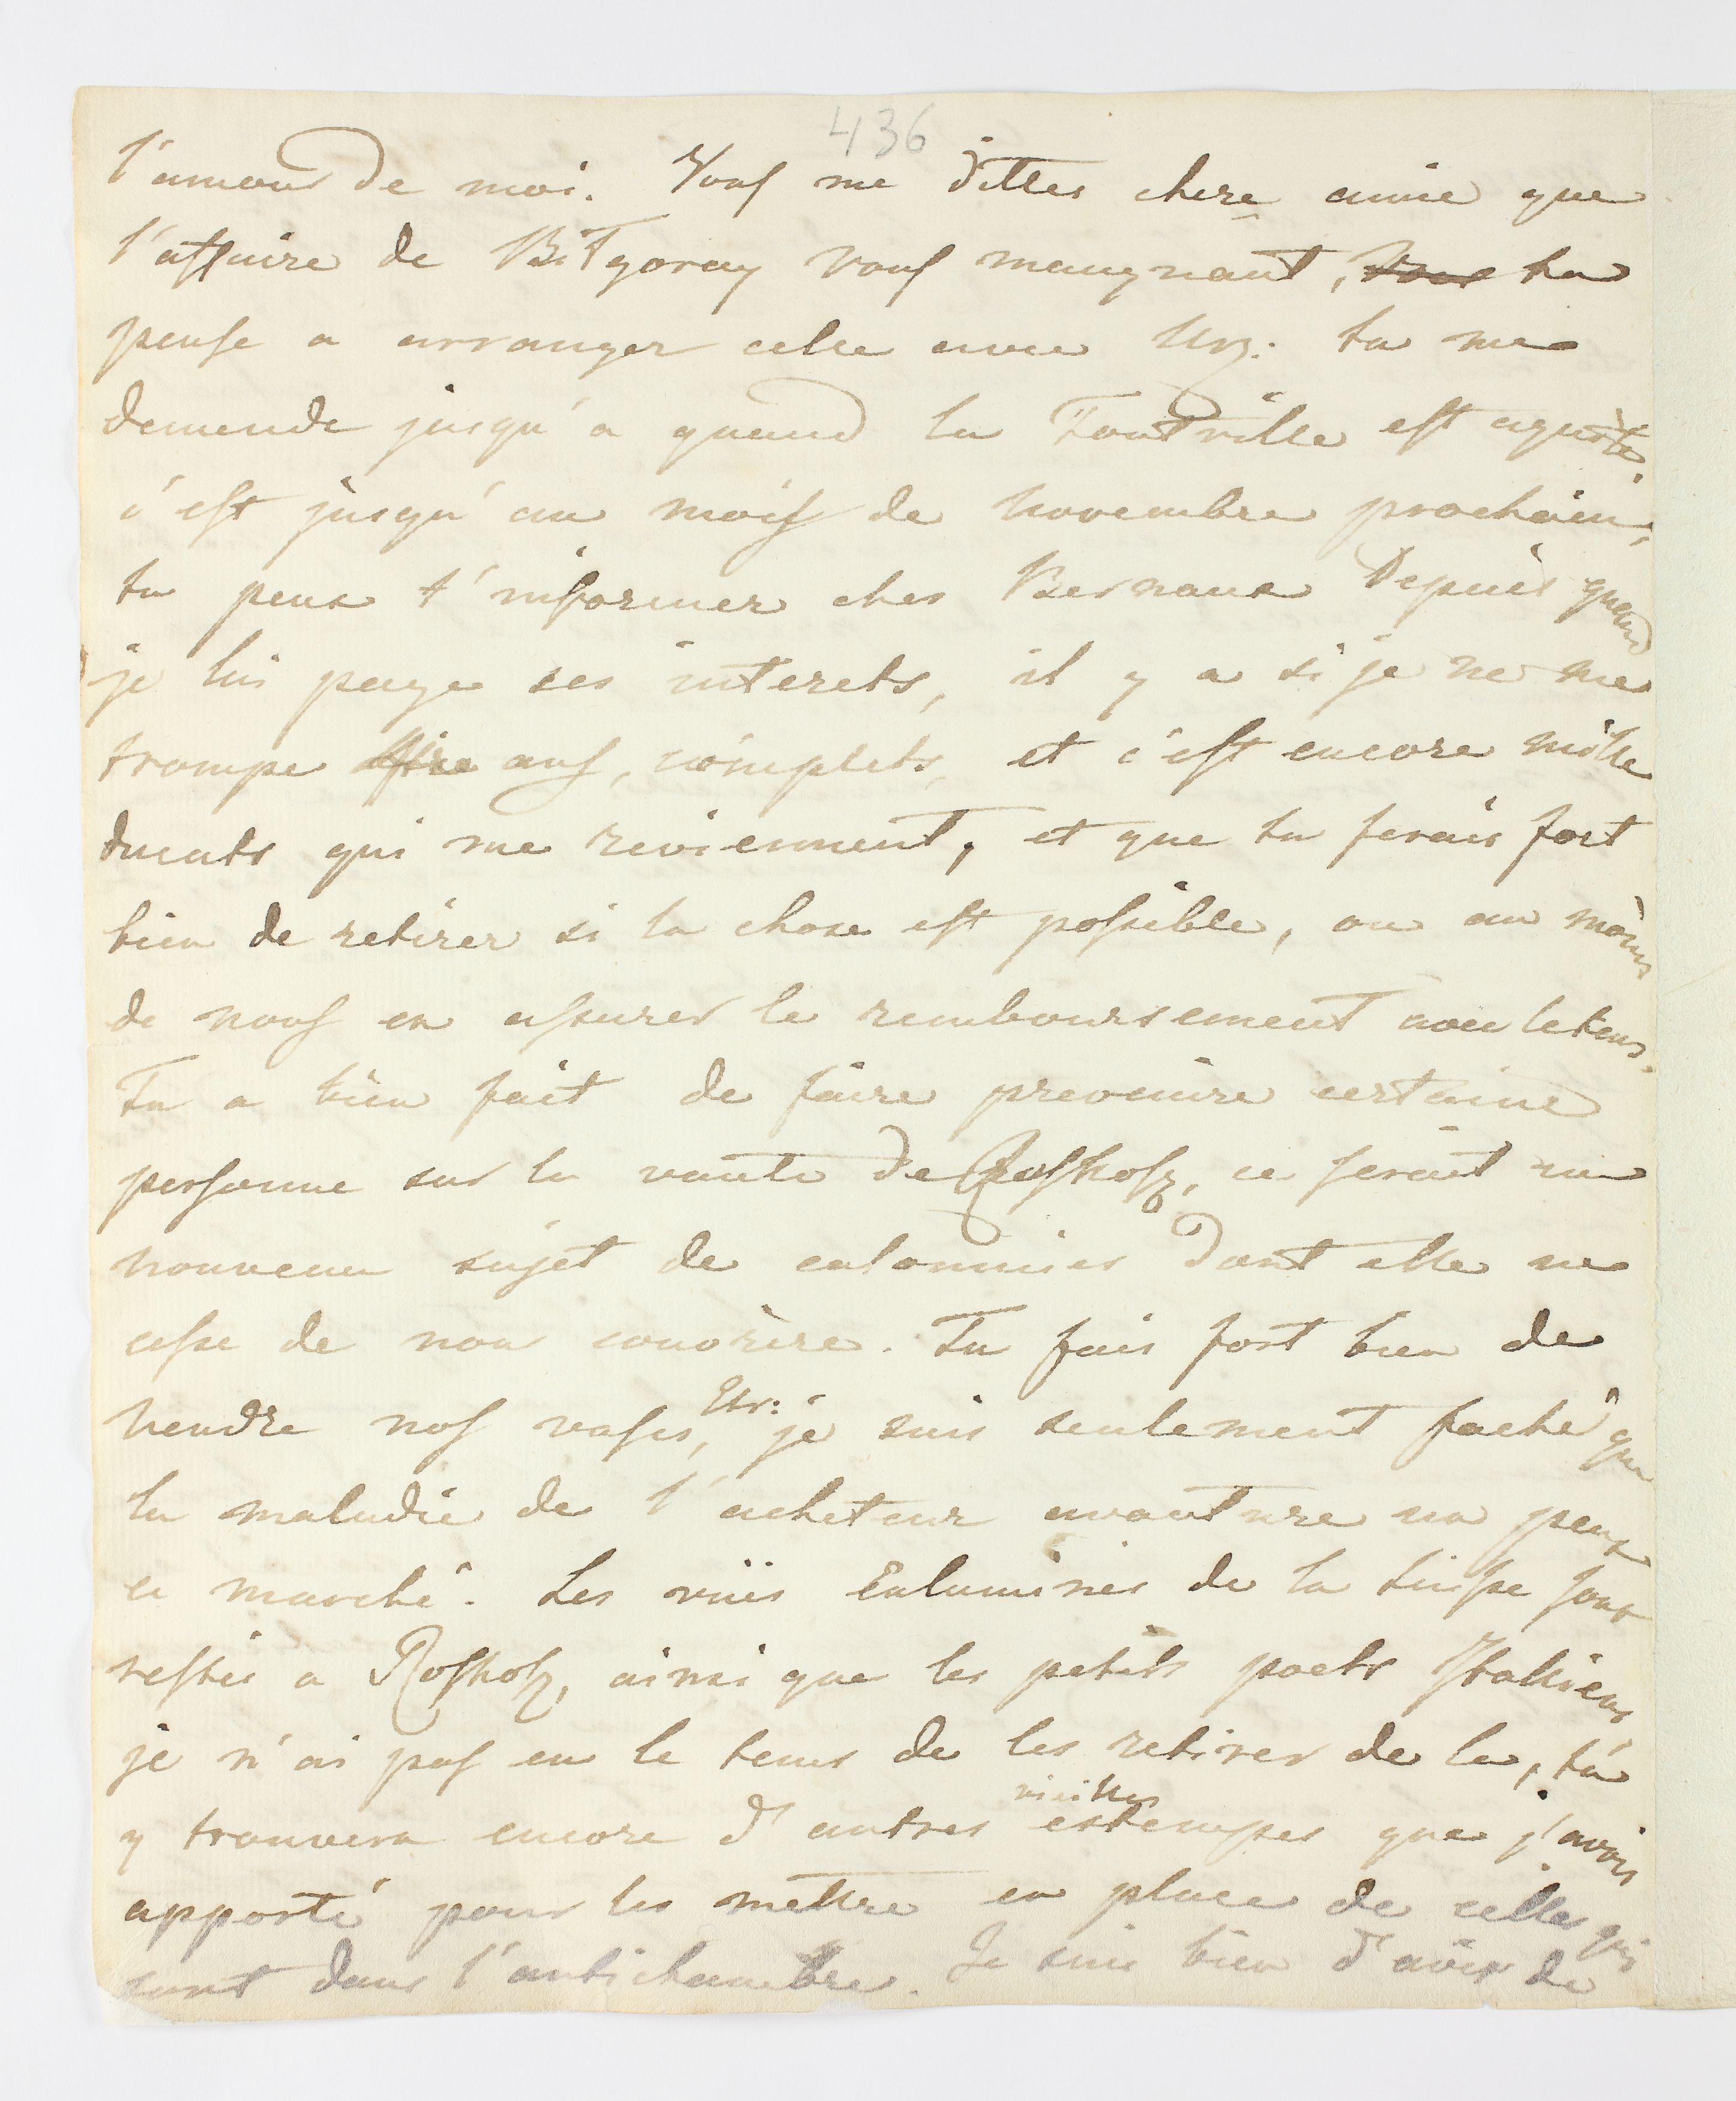 436
l'amour de moi. Vous me dittes chere amie que
l'affaire de Bilgoray vous manquant, tu
pense a arranger celle avec Urz: tu me
demende jusqu'a quand la Tontville est
c'est jusqu'au mois de Novembre prochain,
tu peux t'informer ches Bernaux Depuis quand
je lui paye ses interets, il y a si je ne me
trompe ans, complets, et c'est encore mille
ducats qui me reviennent, et que tu ferais fort
bien de retirer si la chose est possible, ou au moins
de nous en assurer le remboursement avec le tems.
Tu a bien fait de faire prevenire certaine
personne sur la vante de Roskosz, ce serait un
nouveau sujet de calomnies dont elle ne
cesse de nou . Tu fais fort bien de
vendre nos vases, Etr: je suis seulement faché que
la maladie de l'acheteur avanture un peux
ce marché. Les vües Enluminés de la Suisse sont
restés a Roskosz, ainsi que les petits poets Italiens
je n'ai pas eu le tems de les retirer de la, tu
y trouvera encore d'autres vieilles estempes que j'avois
apporté pour les mettre en place de celles qui
sont dans l'antichambre. Je suis bien d'avis de